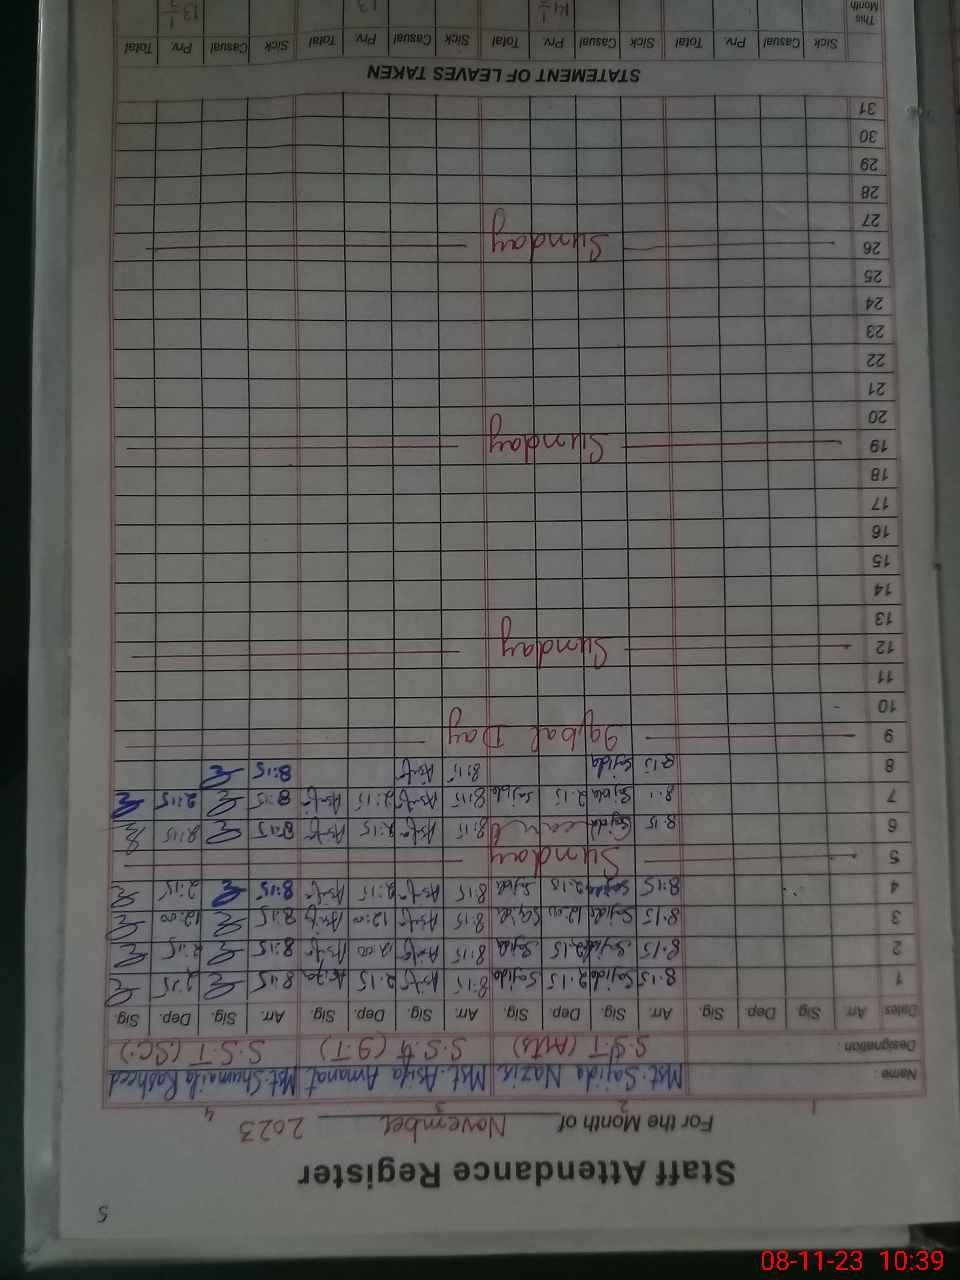 5
Staff Attendance Register
For the Month of November 2023
1 2 3 4
Name : Mst. Sajida Nazir Mst. Asifa Amanat Mst. Shumaila Rasheed
Designation : S.S.T (Arts) S.S.T (I.T) S.S.T (SC.)
Dates Arr. Sig. Dep. Sig. Arr. Sig. Dep. Sig. Arr. Sig. Dep. Sig. Arr. Sig. Dep. Sig.
1 8:15 Sajida 2:15 Sajida 8:15 Asifa 2:15 Asifa 8:15 2:15
2 8:15 Sajida 2:15 Sajida 8:15 Asifa 2:00 Asifa 8:15 2:15
3 8:15 Sajida 12:00 Sajida 8:15 Asifa 12:00 Asifa 8:15 12:00
4 8:15 Sajida 2:15 Sajida 8:15 Asifa 2:15 Asifa 8:15 2:15
5 Sunday
6 8:15 Sajida 8:15 Asifa 2:15 Asifa 8:15 2:15
7 Sajida 2:15 Sajida 8:15 Asifa 2:15 Asifa 8:15 2:15
8 8:15 Sajida 8:15 Asifa 8:15
9 Iqbal Day
10
11
12 Sunday
13
14
15
16
17
18
19 Sunday
20
21
22
23
24
25
26 Sunday
27
28
29
30
31
STATEMENT OF LEAVES TAKEN
Sick Casual Prv. Total Sick Casual Prv. Total Sick Casual Prv. Total Sick Casual Prv. Total
This Month 13
08-11-23 10:39